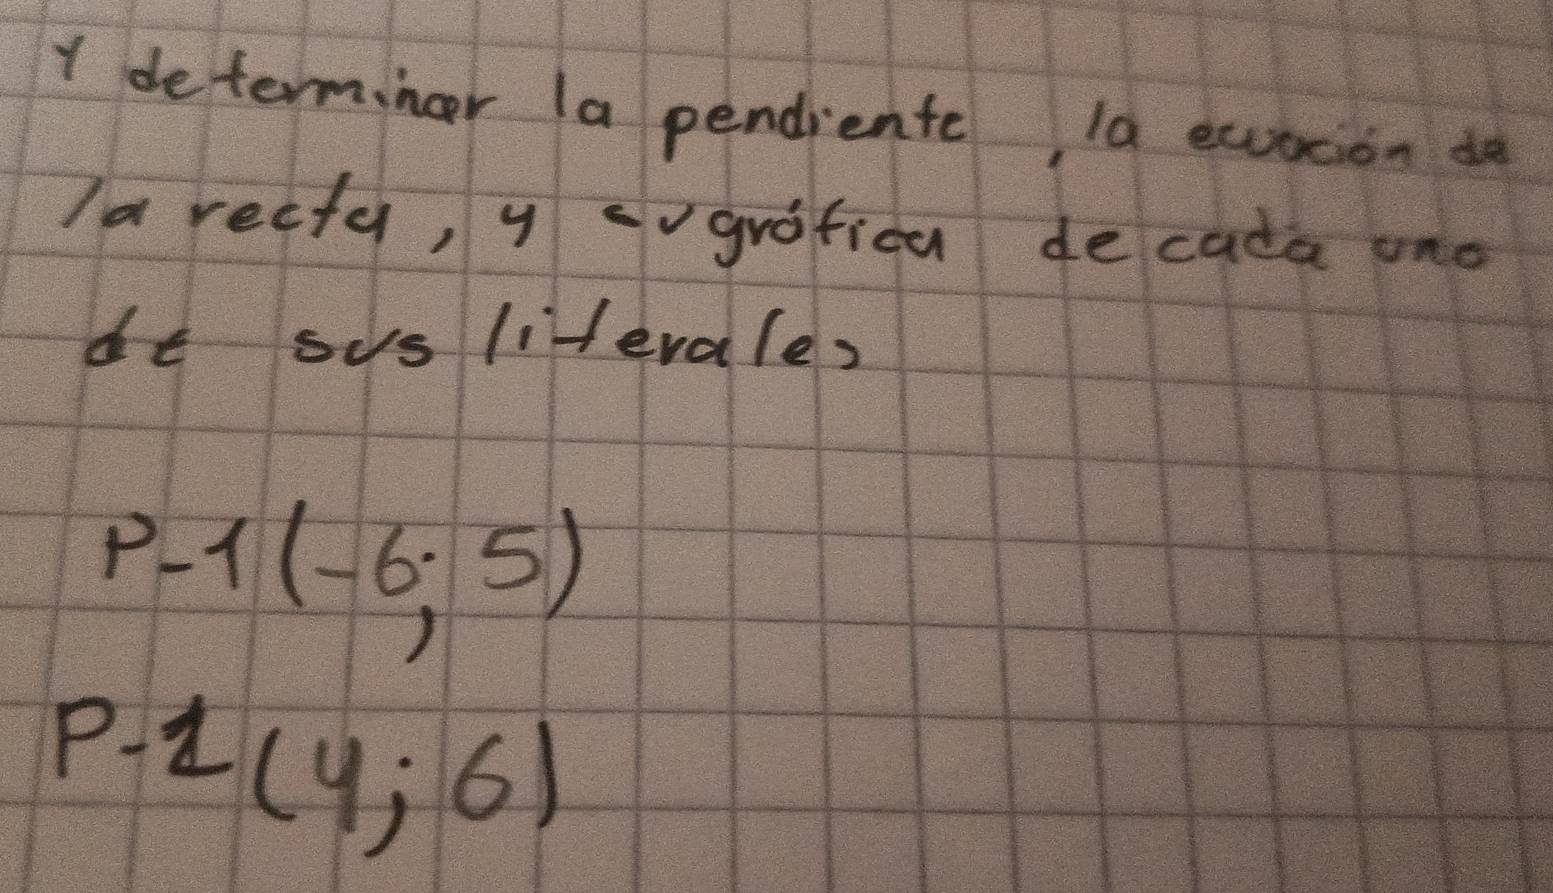 Y determinar la pendiente, la ecuación de
la recta, y su gráfica de cada uno
de sus literales
P-1(-6; 5)
P-2(4; 6)